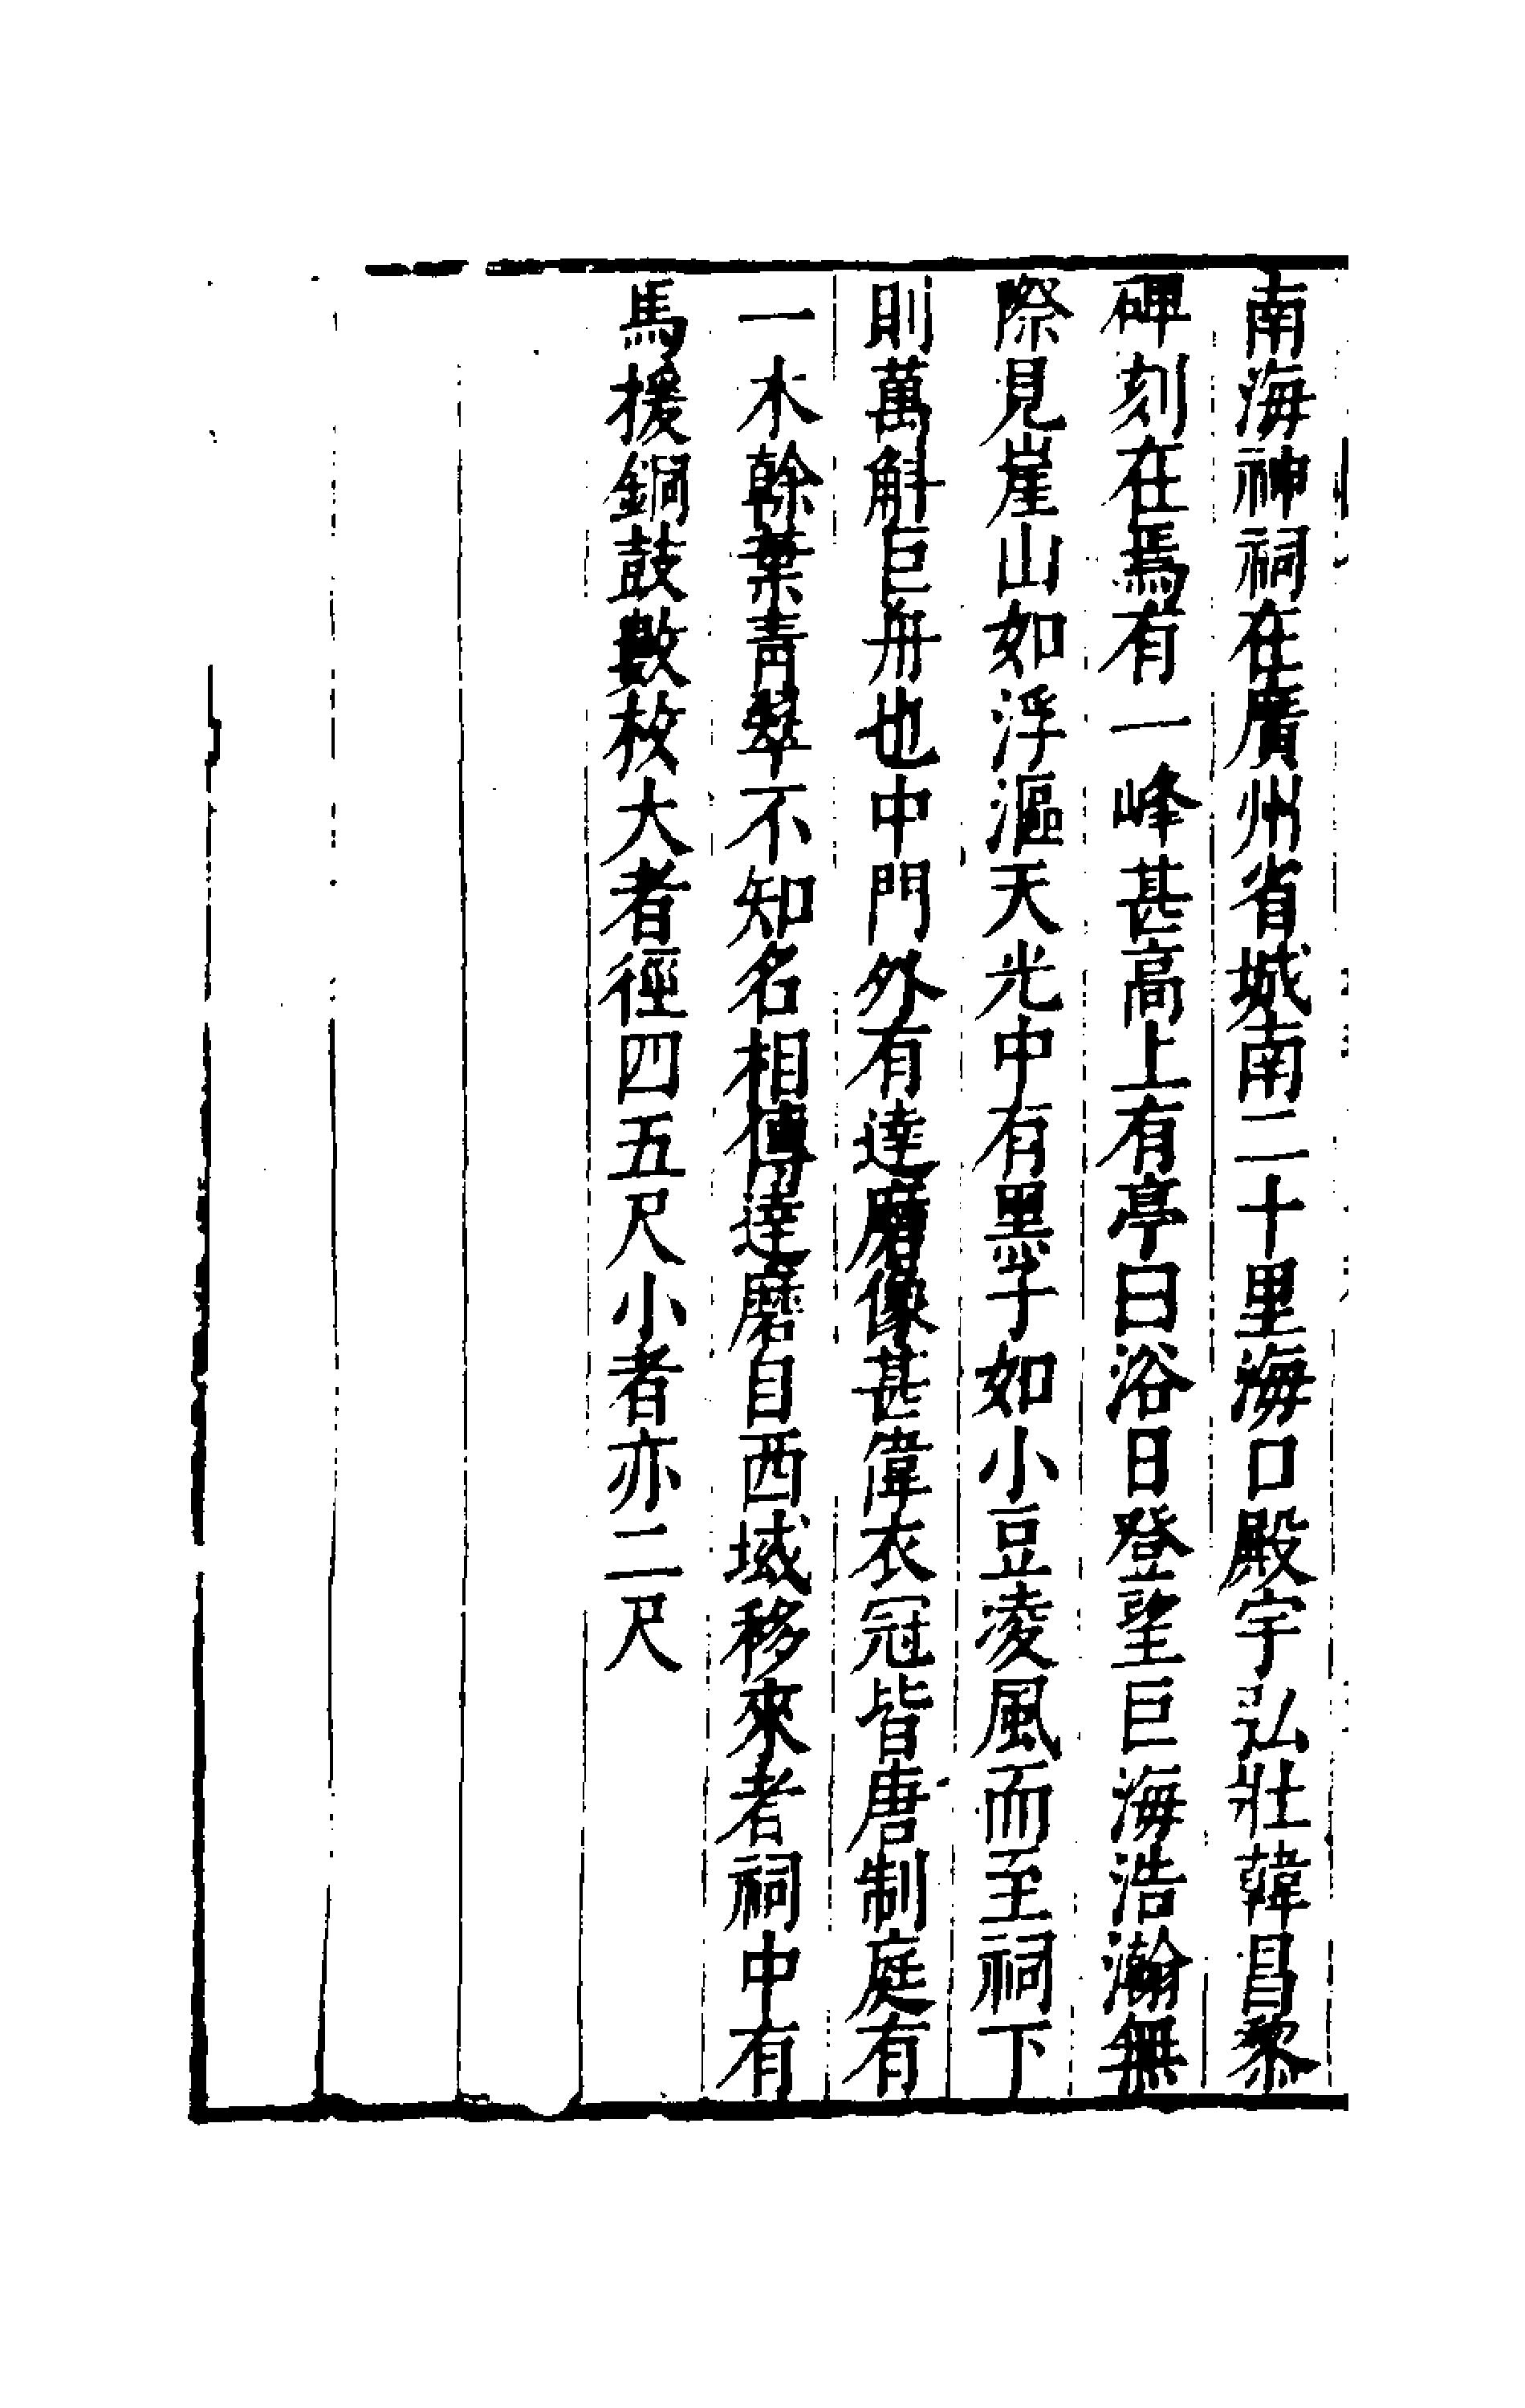 南海神祠在廣州省城南二十里海口殿宇弘壯韓昌黎
碑刻在焉有一峰甚高上有亭曰浴日登望巨海浩瀚無
際見崖山如浮漚天光中有黑子如小豆凌風而至祠下
則萬斛巨舟也中門外有達磨像甚偉衣冠皆唐制庭有
一木幹葉青翠不知名相傳達磨自西域移來者祠中有
馬援銅鼓數枚大者徑四五尺小者亦二尺